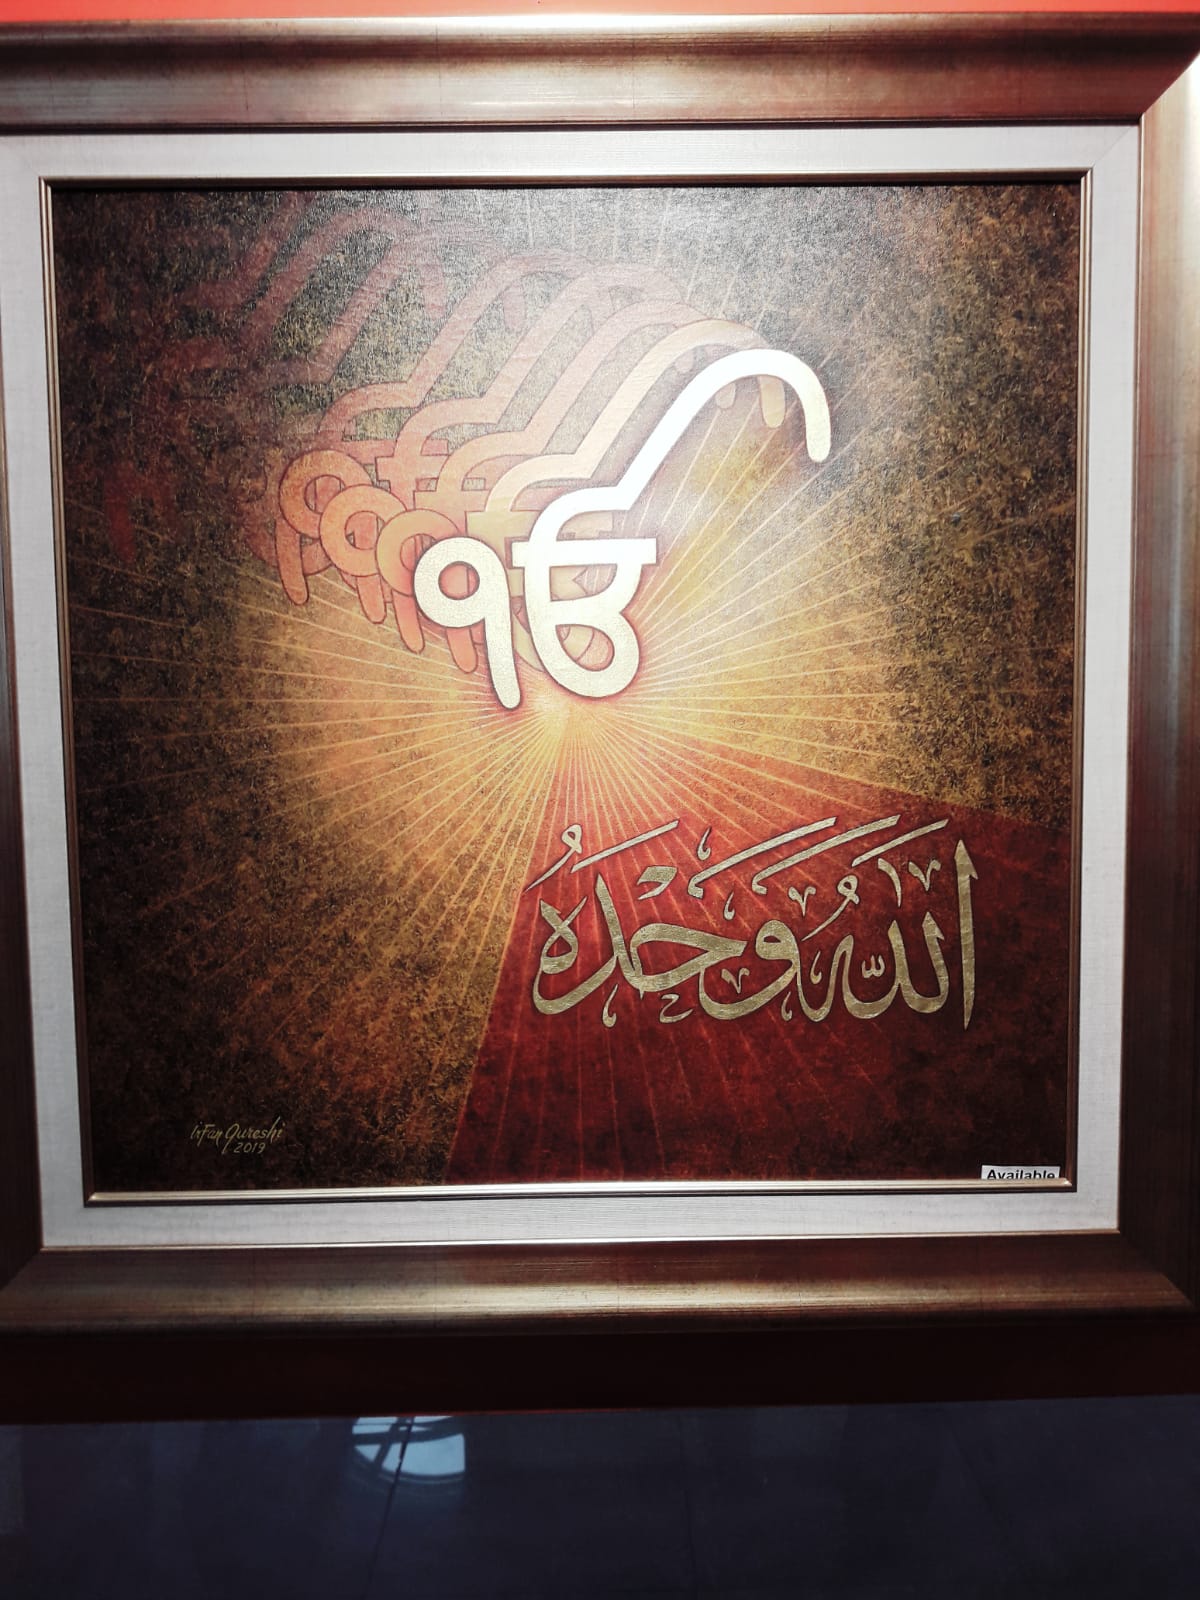 ੴ
اللّٰهُ وَحْدَهُ
Irfan Qureshi
2019
Available